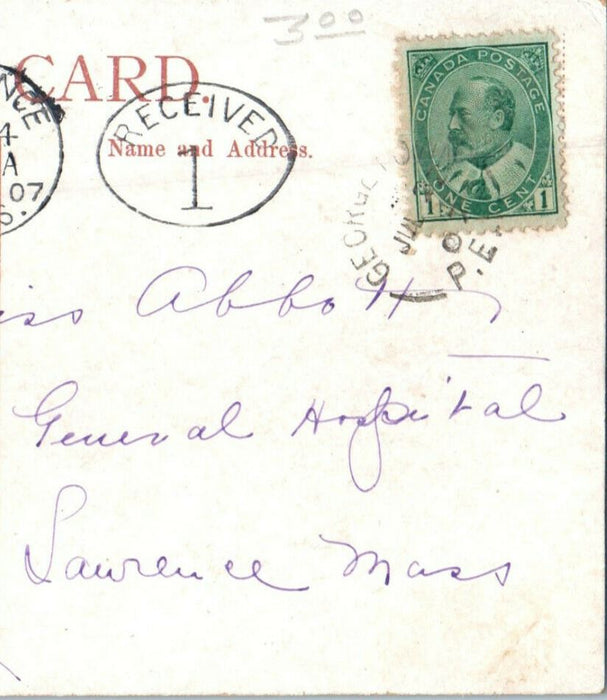 3.00
CARD.
Name and Address.
RECEIVED
1
NCE
4
A
07
S.
CANADA POSTAGE
ONE CENT
1 1
GEORGE
JU
P.E.
iss Abbott
General Hospital
Lawrence Mass